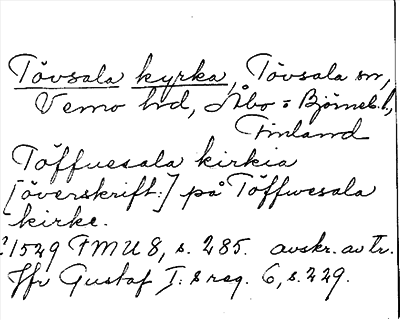 Tövsala kyrka, Tövsala sn,
Vemo hd, Åbo=Björneb. l,
Finland
Töffuesala kirkia
[överskrift:] på Töffwesala
kirke.
?1529 FMU 8, s. 285. avskr. av Tr.
Jfr Gustaf I:s reg. 6, s. 229.